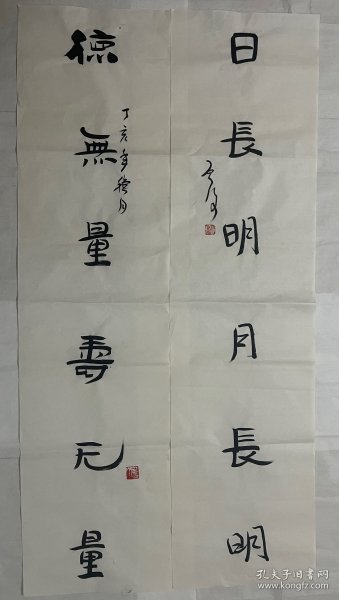 日長明月長明
德無量壽无量
丁亥年
月
孔夫子旧书网
www.kongfz.com